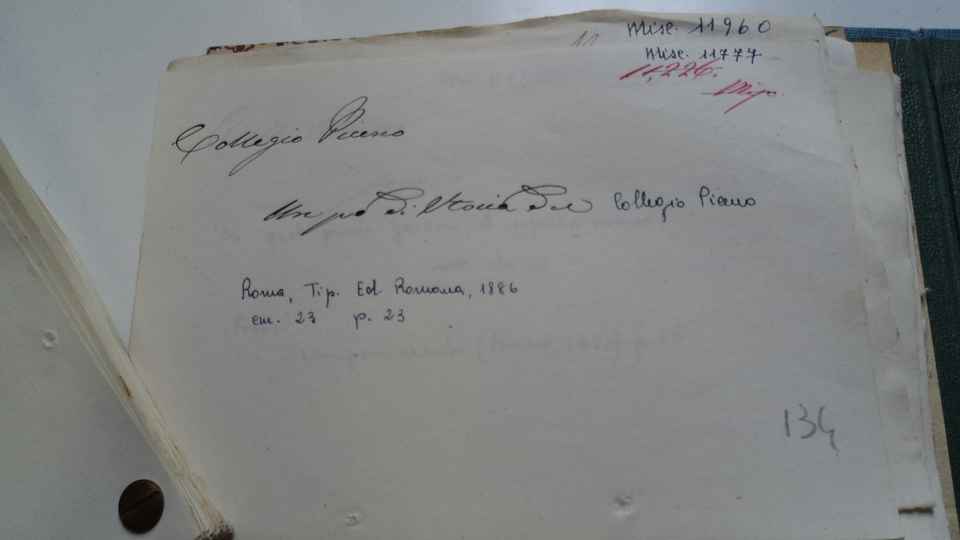 Misc. 11960
Misc. 11777
11,226.
Misc.
Collegio Piceno
Un po' di Storia del Collegio Piceno
Roma, Tip. Ed. Romana, 1886
cm. 23 p. 23
134